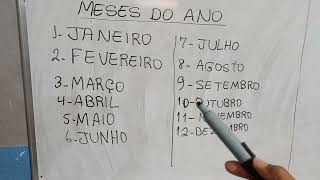 MESES DO ANO
1- JANEIRO
2- FEVEREIRO
3- MARÇO
4- ABRIL
5- MAIO
6- JUNHO
7- JULHO
8- AGOSTO
9- SETEMBRO
10- OUTUBRO
11-
12-